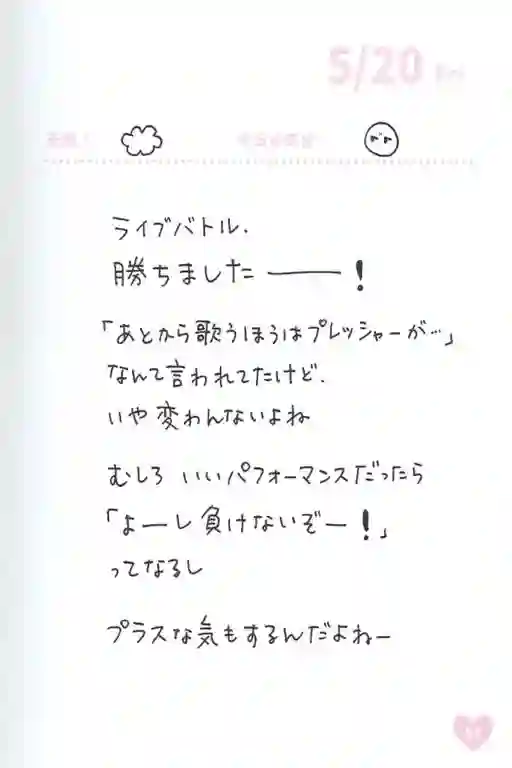 5/20
ライブバトル.
勝ちました――!
「あとから歌うほうはプレッシャーが…」
なんて言われてたけど.
いや変わんないよね
むしろ いいパフォーマンスだったら
「よーし負けないぞー!」
ってなるし
プラスな気もするんだよねー